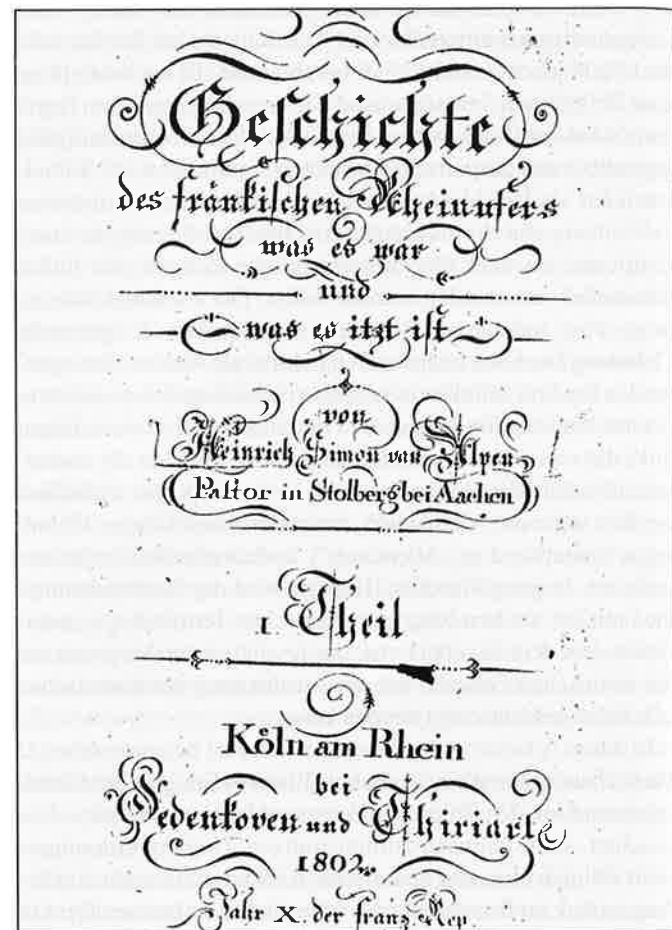 Geschichte
des fränkischen Rheinufers
was es war
und
was es itzt ist
von
Heinrich Simon van Alpen
Pastor in Stolberg bei Aachen
1 Theil
Köln am Rhein
bei
Oedenkoven und Thiriart
1802.
Jahr X. der franz. Rep.